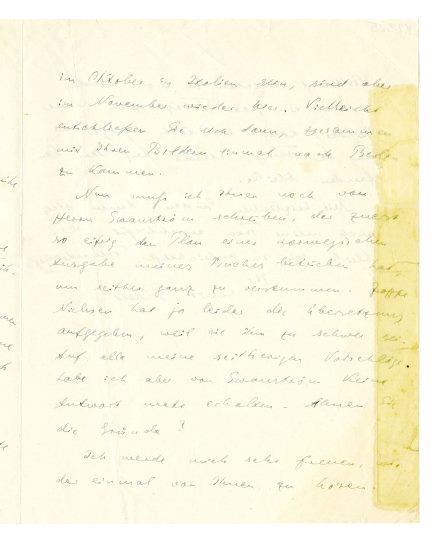 im Oktober in Italien sein, sind aber
im November wieder hier. Vielleicht
entschließen Sie sich dann, zusammen
mit Ihren Bildern einmal nach Berlin
zu kommen.
Nun muß ich Ihnen noch von
Herrn Swanström schreiben, der zuerst
so eifrig den Plan einer norwegischen
Ausgabe meines Buches betrieben hat,
um seither ganz zu verstummen.
Nielsen hat ja leider die Übersetzung
aufgegeben, weil sie ihm zu schwer
Auf alle meine seitherigen Vorschläge
habe ich aber von Swanström keine
Antwort mehr erhalten. Ahnen Sie
die Gründe?
Ich werde mich sehr freuen,
der einmal von Ihnen zu hören.